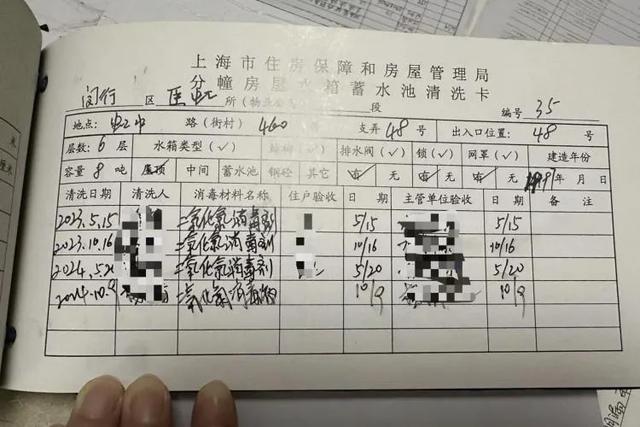 上海市住房保障和房屋管理局
分幢房屋水箱蓄水池清洗卡
闵行 区 所(物业公司) 段 编号 35
地点: 路(街村) 460 支弄 48 号 出入口位置: 48 号
层数: 6 层 水箱类型(✓) 排水阀(✓) 锁(✓) 网罩(✓) 建造年份
容量 8 吨 屋顶 中间 蓄水池 钢砼 其它 有 无 有 无 有 无 年 月 日
清洗日期 清洗人 消毒材料名称 住户验收 日期 主管单位验收 日期 备注
2023.5.15 二氧化氯消毒剂 5/15 5/15
2023.10.16 二氧化氯消毒剂 10/16 10/16
2024.5.21 二氧化氯消毒剂 5/20 5/20
2024.10.9 二氧化氯消毒剂 10/9 10/9